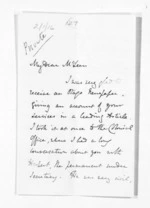 Private
My dear McLean
I was very glad to
receive an Otago Newspaper
giving an account of your
services in a leading Article
I took it at once to the Colonial
Office, where I had a long
conversation about you with
the permanent under
Secretary. He was very civil,